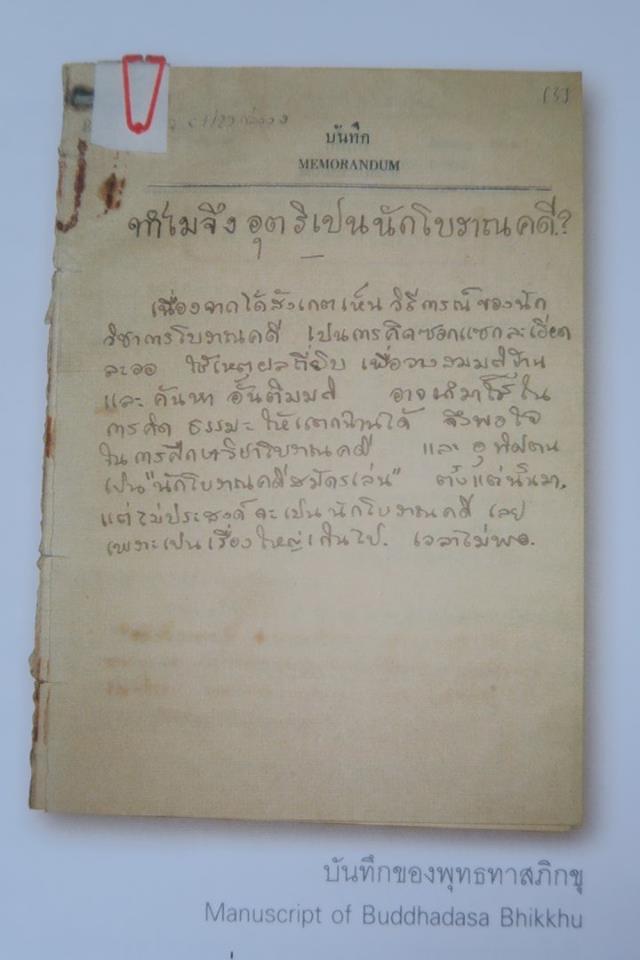 (3)
บันทึก
MEMORANDUM
ทำไมจึง อุตริเป็นนักโบราณคดี.?
เนื่องจากได้สังเกตเห็น วิธีการณ์ของนัก
วิชาการโบราณคดี เป็นการคิดซอกแซกละเอียด
ละออ ใช้เหตุผลถี่ยิบ เพื่อวางสมมติฐาน
และ ค้นหา อันติมมติ อาจนำมาใช้ใน
การคิด ธรรมะ ให้แตกฉานได้ จึงพอใจ
ในการศึกษาวิชาโบราณคดี และ อุทิศตน
เป็น "นักโบราณคดีสมัครเล่น" ตั้งแต่นั้นมา.
แต่ไม่ประสงค์ จะเป็น นักโบราณคดี เลย
เพราะเป็นเรื่องใหญ่เกินไป. เวลาไม่พอ.
บันทึกของพุทธทาสภิกขุ
Manuscript of Buddhadasa Bhikkhu